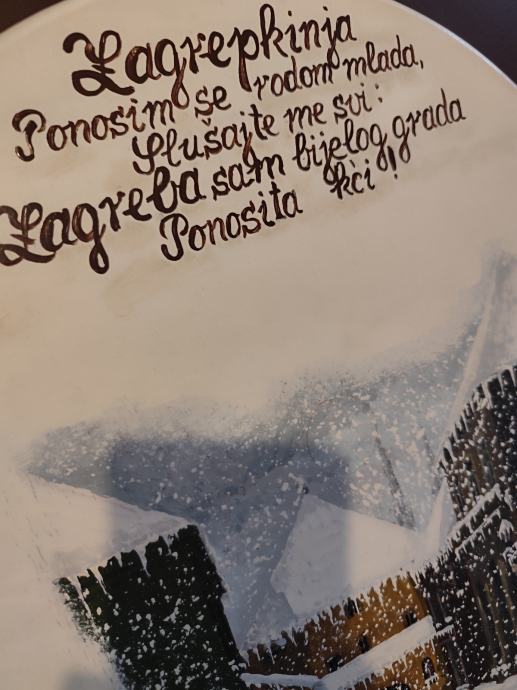 Zagrepkinja
Ponosim se rodom mlada,
Slušajte me svi:
Zagreba sam bijelog grada
Ponosita kći!